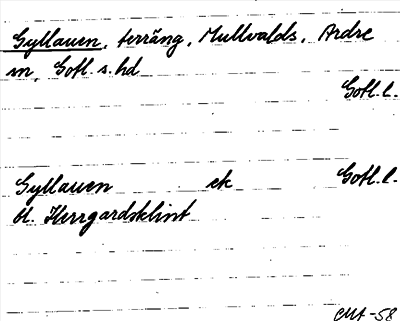 Gyllauen, terräng, Mullvalds, Ardre
sn, Gotl. s. hd
Gotl. l.
Gyllauen ek Gotl. l.
bl. Herrgardsklint
CMA -58